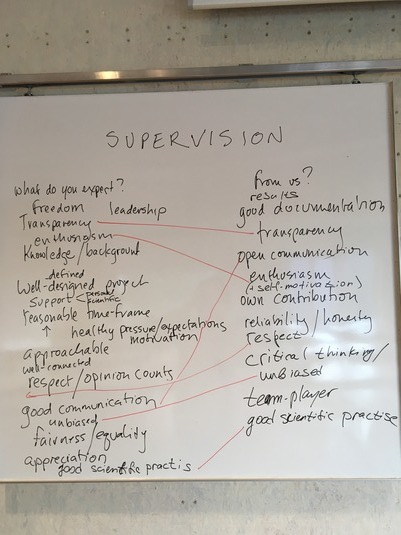 SUPERVISION
what do you expect?
freedom leadership
Transparency
enthusiasm
Knowledge / background
defined
Well-designed project
support < personal
scientific
reasonable time-frame
↑ healthy pressure/expectations
motivation
approachable
well-connected
respect / opinion counts
good communication
unbiased
fairness/equality
appreciation
good scientific practis
from us?
results
good documentation
transparency
open communication
enthusiasm
(+ self-motivation)
own contribution
reliability / honesty
respect
critical thinking /
unbiased
team-player
good scientific practise